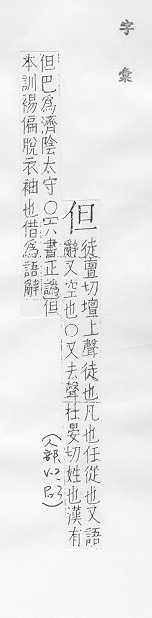 字彙
但
徒亶切壇上聲徒也凡也任從也又語
辭又空也○又去聲杜晏切姓也漢有
但巴爲濟陰太守○六書正譌但
本訓裼偏脫衣袖也借爲語辭
(人部